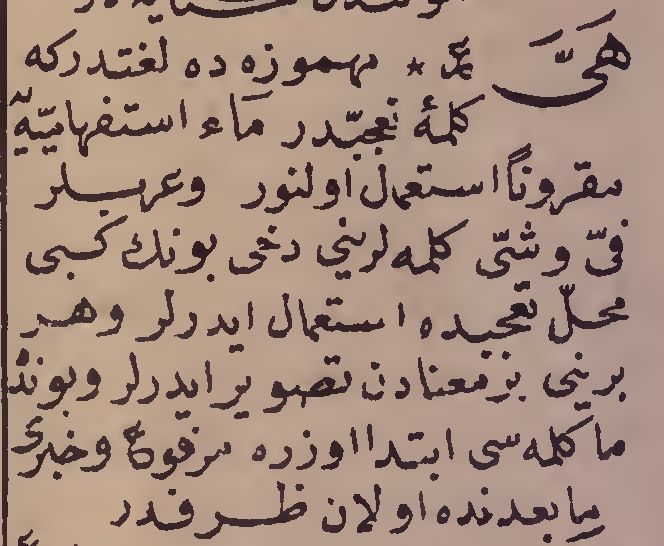 هَىَّ ﷴ * مهموزه ده لغتدركه
كلمۀ تعجّبدر مَاء استفهاميّه‌يه
مقرونًا استعمال اولنور وعربلر
فىّ وشىّ كلمه لرينى دخى بونك كبى
محلّ تعجبده استعمال ايدرلر وهر
برينى بر معنادن تصوير ايدرلر وبونده
ما كلمه سى ابتدا اوزره مرفوع وخبرى
مابعدنده اولان ظرفدر